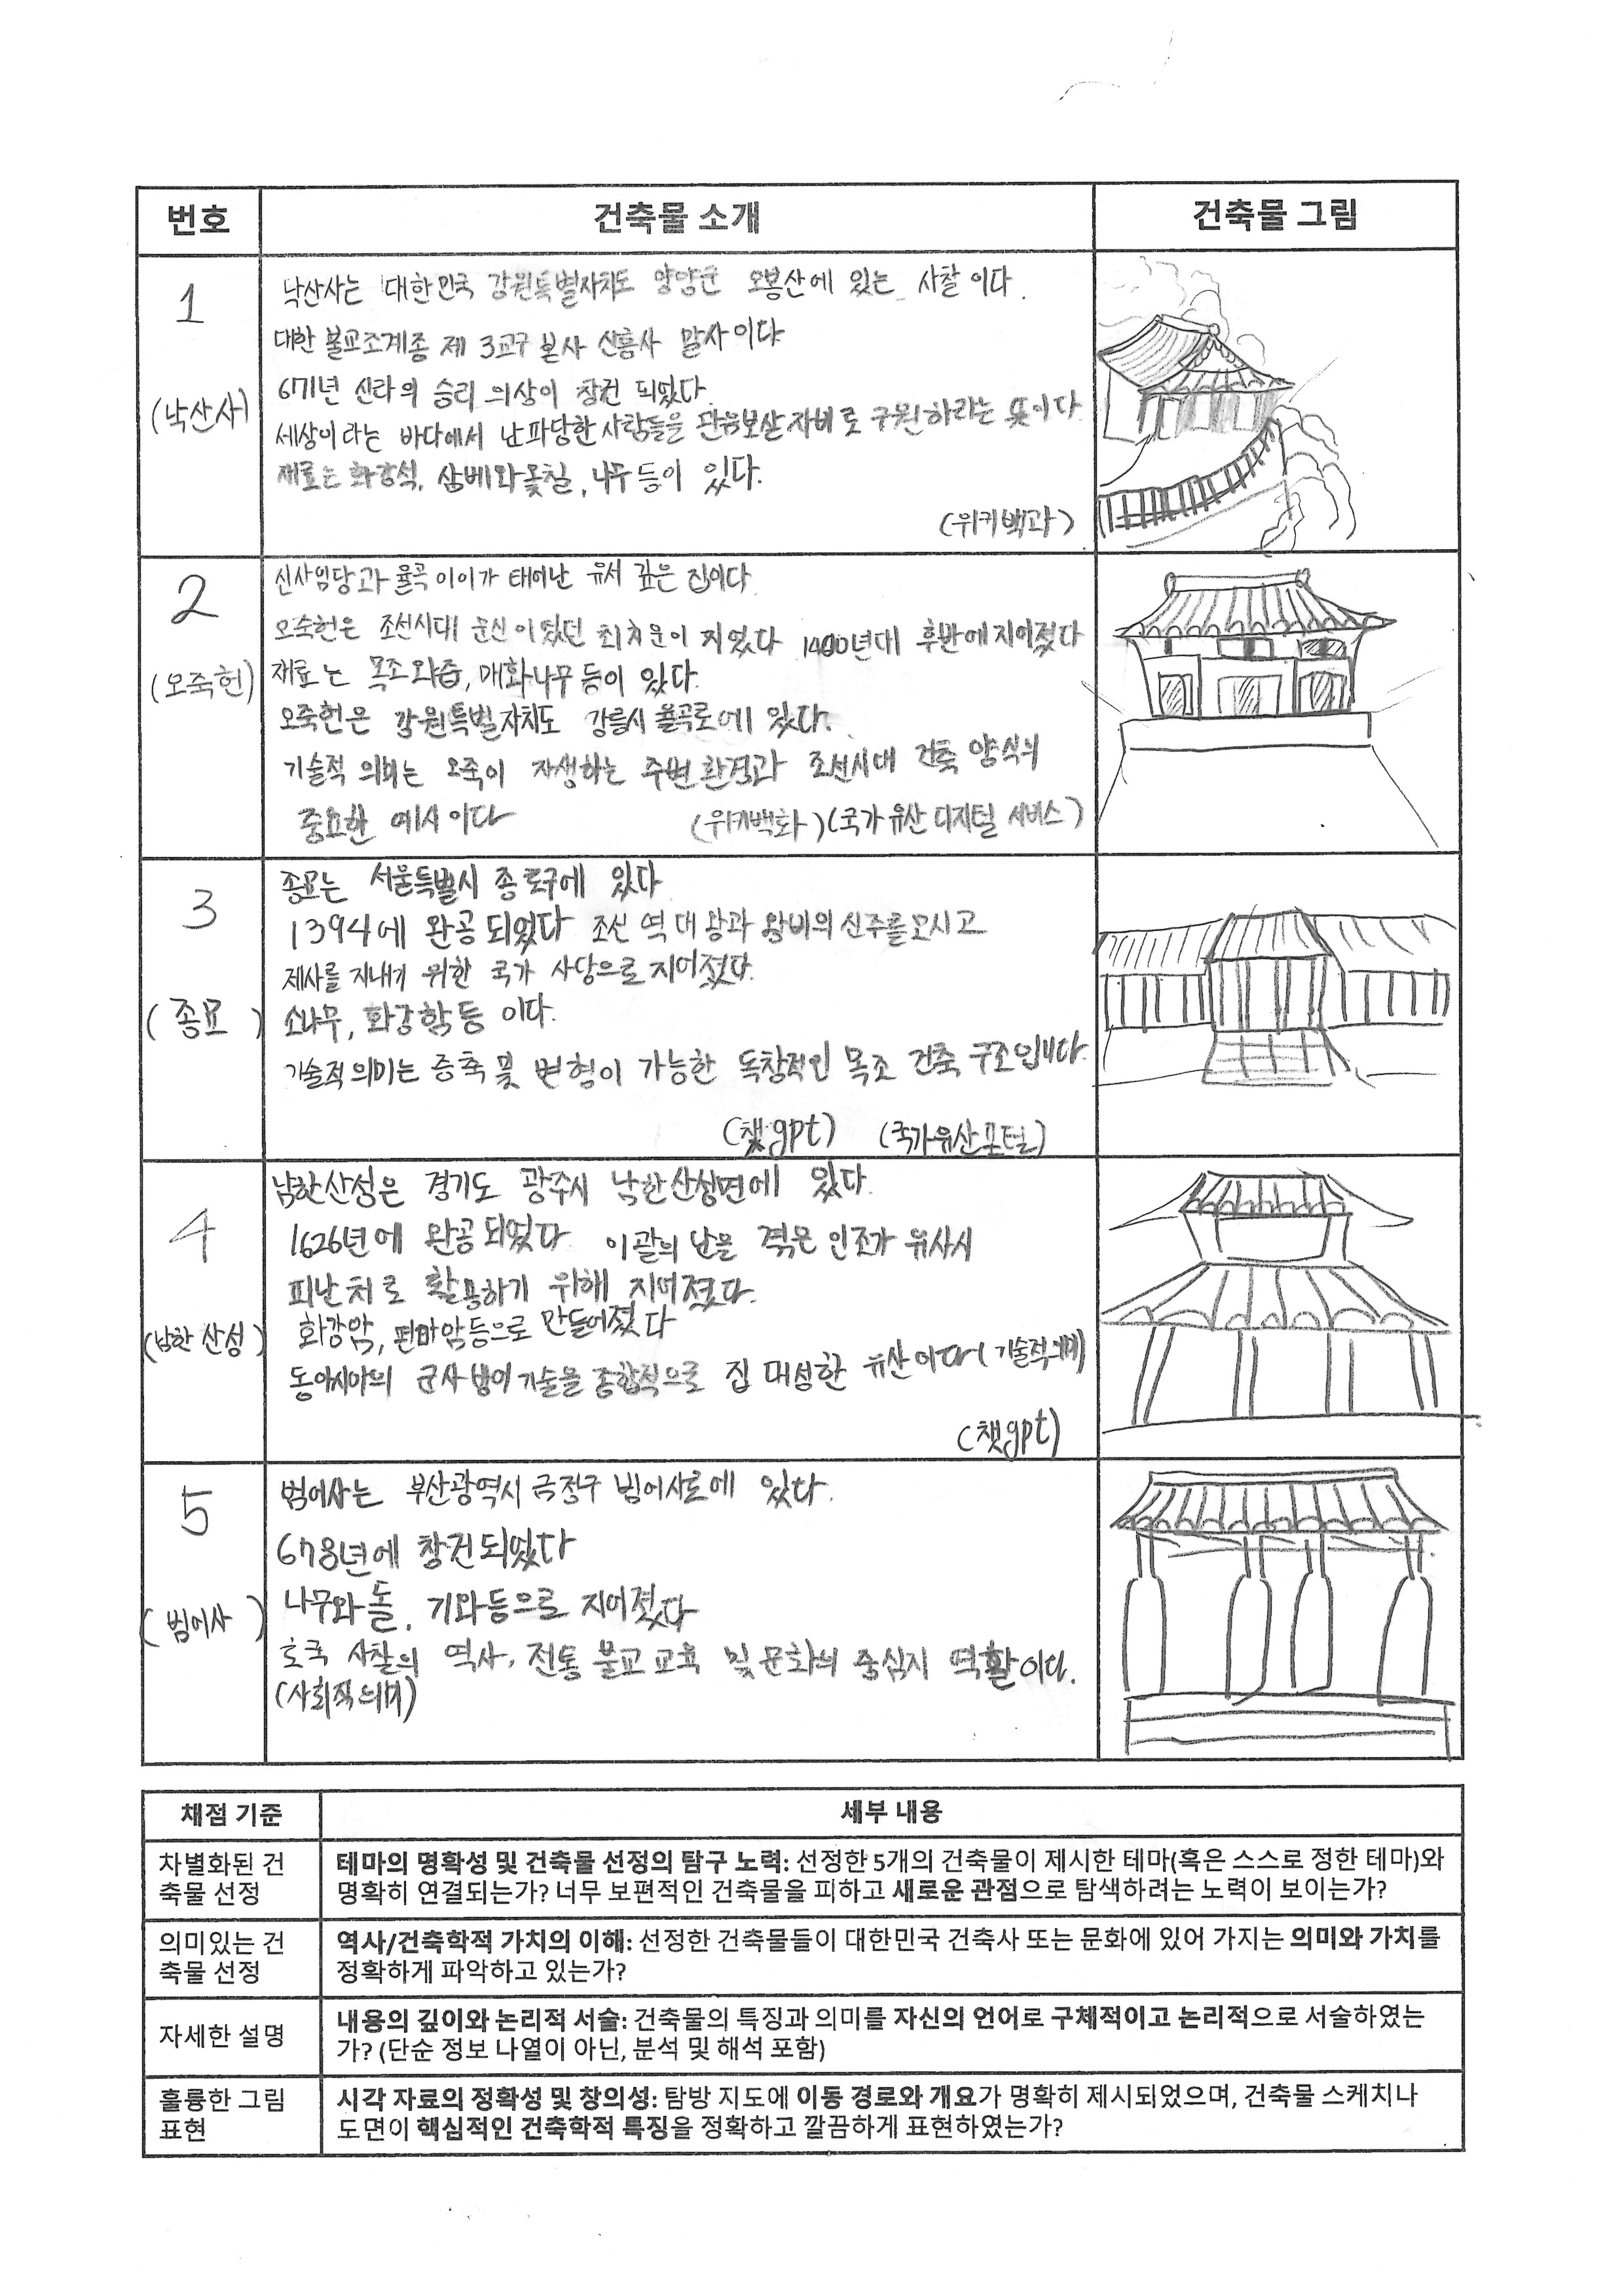 번호
건축물 소개
건축물 그림
1
(낙산사)
낙산사는 대한민국 강원특별자치도 양양군 오봉산에 있는 사찰이다.
대한 불교조계종 제 3교구 본사 신흥사 말사이다
671년 신라의 승리 의상이 창건 되었다.
세상이라는 바다에서 난파당한 사람들을 관음보살 자비로 구원하라는 뜻이다
재료는 화강석, 삼베와옻칠, 나무 등이 있다.
(위키백과)
2
(오죽헌)
신사임당과 율곡 이이가 태어난 유서 깊은 집이다
오죽헌은 조선시대 문신이었던 최치운이 지었다 1400년대 후반에 지어졌다
재료는 목조와 매화나무 등이 있다.
오죽헌은 강원특별자치도 강릉시 율곡로에 있다.
기술적 의미는 오죽이 자생하는 주변 환경과 조선시대 건축 양식의
중요한 예시이다
(위키백화) (국가유산 디지털 서비스)
3
(종묘)
종묘는 서울특별시 종로구에 있다
1394에 완공 되었다 조선 역대 왕과 왕비의 신주를 모시고
제사를 지내기 위한 국가 사당으로 지어졌다.
소나무, 화강함 등 이다.
기술적 의미는 증축 및 변형이 가능한 독창적인 목조 건축 구조입니다.
(챗gpt) (국가유산포털)
4
(남한산성)
남한산성은 경기도 광주시 남한산성면에 있다.
1626년에 완공 되었다 이괄의 난을 겪은 인조가 유사시
피난처로 활용하기 위해 지어졌다.
화강암, 편마암등으로 만들어졌다
동아시아의 군사 방어 기술을 종합적으로 집 대성한 유산이다(기술적의미)
(챗gpt)
5
(범어사)
범어사는 부산광역시 금정구 범어사로에 있다.
678년에 창건되었다
나무와 돌, 기와등으로 지어졌다
호국 사찰의 역사, 전통 불교 교육 및 문화의 중심지 역활이다.
(사회적의미)
채점 기준
세부 내용
차별화된 건
축물 선정
테마의 명확성 및 건축물 선정의 탐구 노력: 선정한 5개의 건축물이 제시한 테마(혹은 스스로 정한 테마)와
명확히 연결되는가? 너무 보편적인 건축물을 피하고 새로운 관점으로 탐색하려는 노력이 보이는가?
의미있는 건
축물 선정
역사/건축학적 가치의 이해: 선정한 건축물들이 대한민국 건축사 또는 문화에 있어 가지는 의미와 가치를
정확하게 파악하고 있는가?
자세한 설명
내용의 깊이와 논리적 서술: 건축물의 특징과 의미를 자신의 언어로 구체적이고 논리적으로 서술하였는
가? (단순 정보 나열이 아닌, 분석 및 해석 포함)
훌륭한 그림
표현
시각 자료의 정확성 및 창의성: 탐방 지도에 이동 경로와 개요가 명확히 제시되었으며, 건축물 스케치나
도면이 핵심적인 건축학적 특징을 정확하고 깔끔하게 표현하였는가?